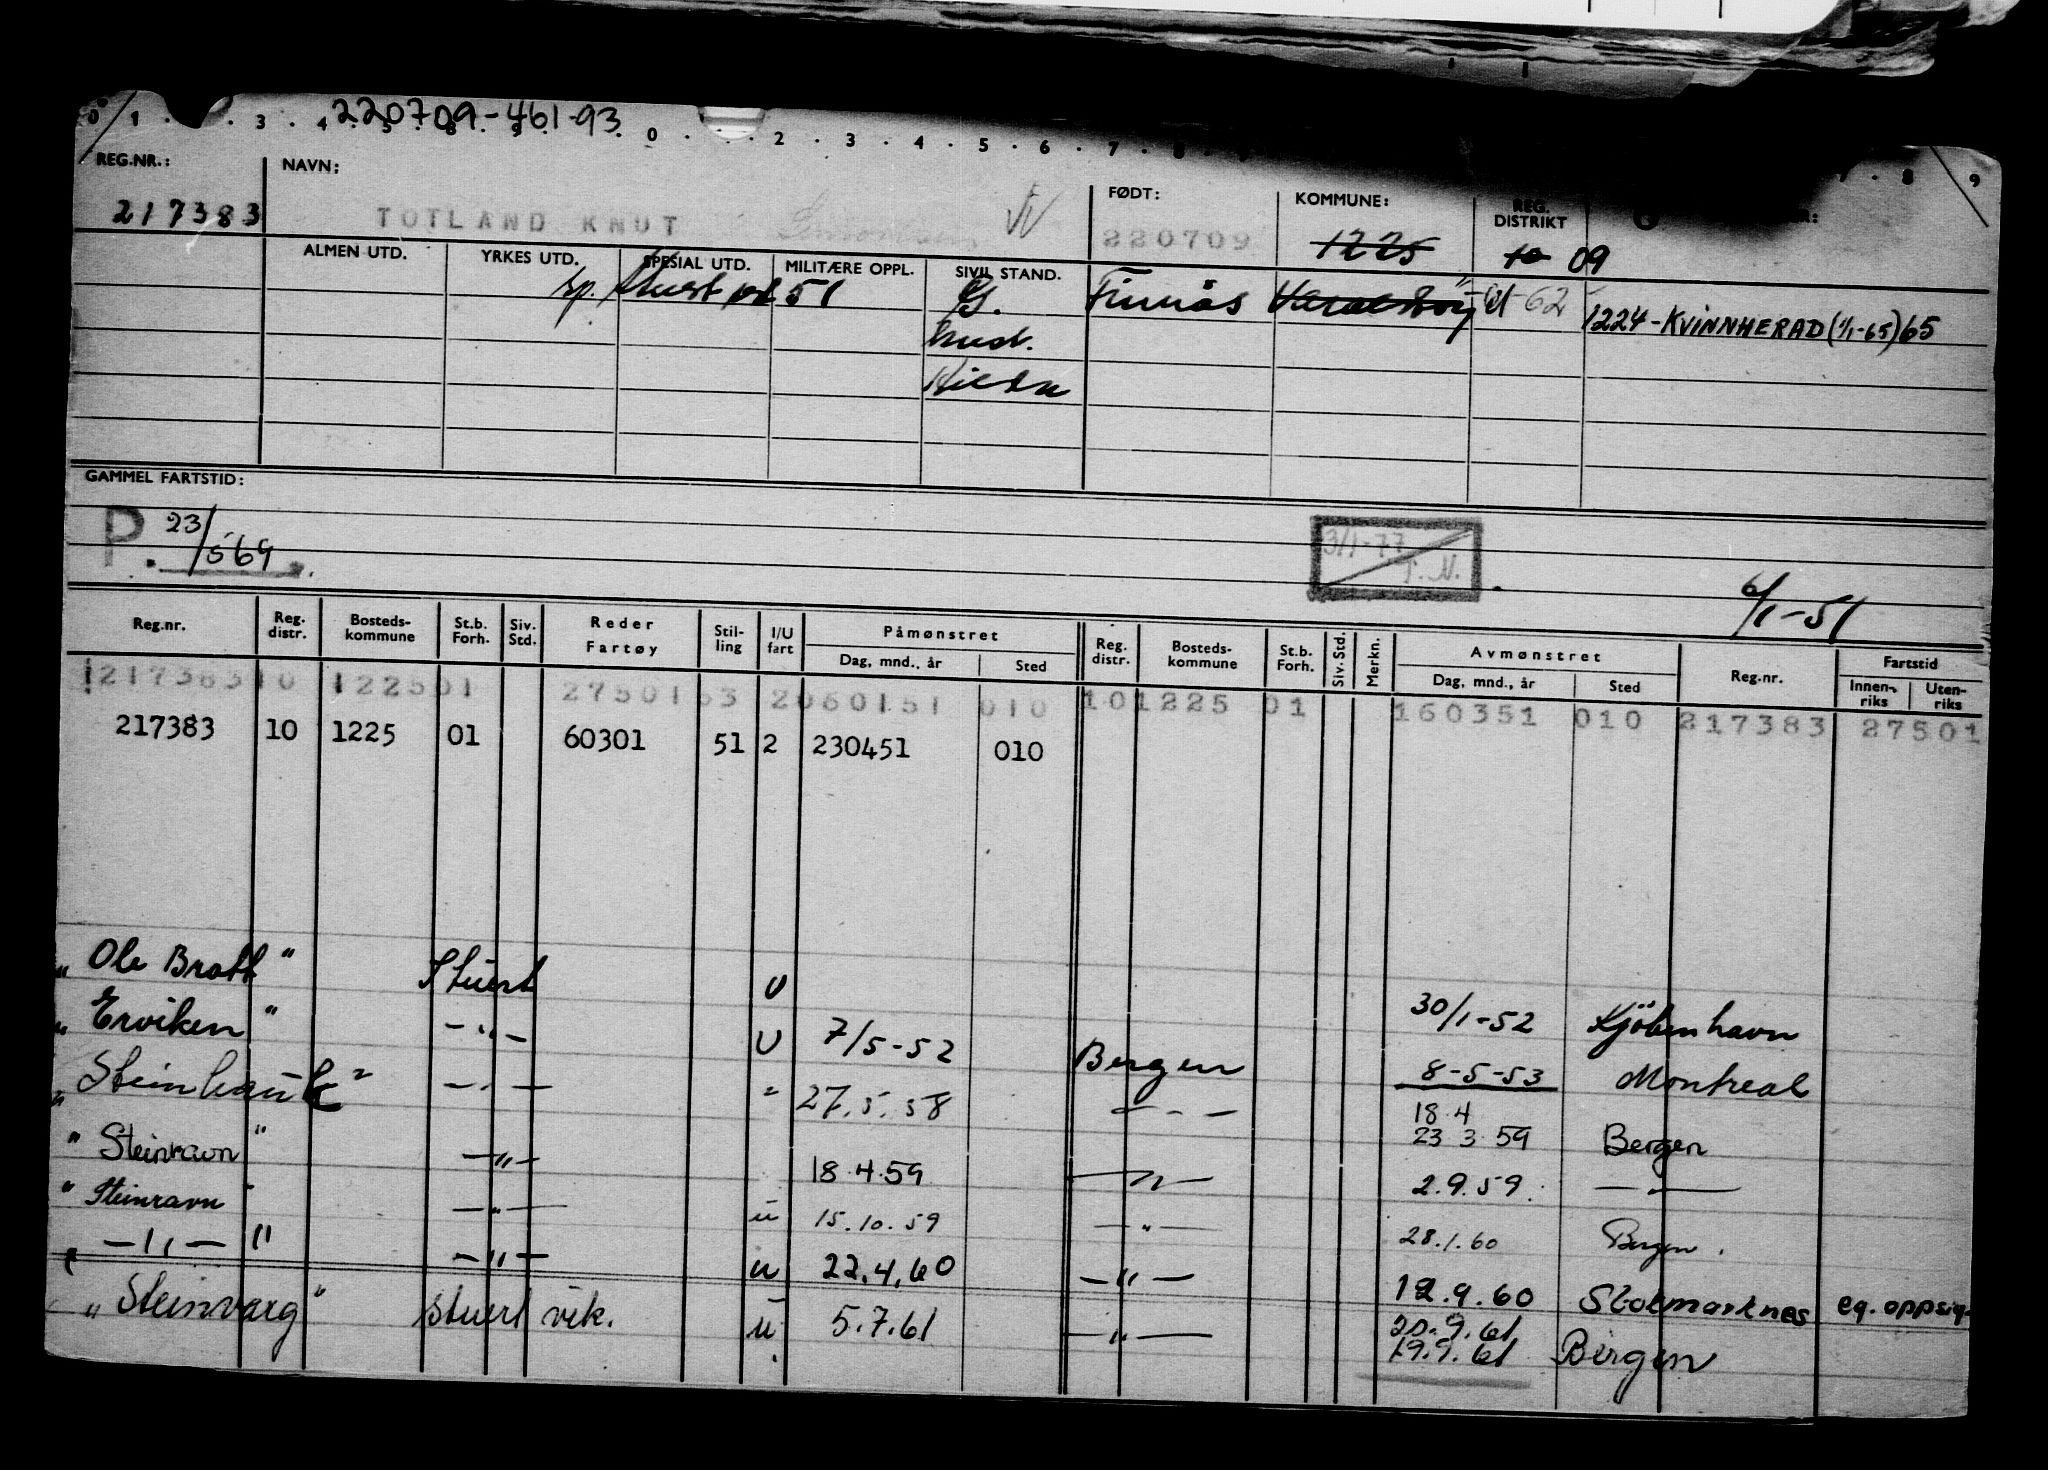 220709-461-93
0 1 . . 3 . 4 . 5 . 8 . 9 . 0 . . . 2 . 3 . 4 . 5 . 6 . 7 . 8 . 9 7 . 8 9
REG.NR.: NAVN: FØDT: KOMMUNE: REG. DISTRIKT
217383 TOTLAND KNUT W 220709 1225 10 09
ALMEN UTD. YRKES UTD. SPESIAL UTD. MILITÆRE OPPL. SIVIL STAND.
sp. stuert 51 G. Finnås 62 1224-KVINNHERAD (1/1-65) 65
hust.
Hilda
GAMMEL FARTSTID:
P. 23/5 69 3/1-77 T.N.
6/1-51
Reg.nr. Reg. distr. Bosteds- kommune St.b. Forh. Siv. Std. Reder Fartøy Stil- ling I/U fart Påmønstret Dag, mnd., år Sted Reg. distr. Bosteds- kommune St.b. Forh. Siv. Std. Merkn. Avmønstret Dag, mnd., år Sted Reg.nr. Fartstid Innen- riks Uten- riks
217383 10 1225 01 2750153 2060151 010 10 1225 01 160351 010 217383 27501
217383 10 1225 01 60301 51 2 230451 010
"Ole Bratt" Stuert U 30/1-52 Kjöbenhavn
"Erviken" —"— U 7/5-52 Bergen 8-5-53 Montreal
"Steinhauk" —"— " 27.5.58 —"— 18.4
23 3 59 Bergen
"Steinravn" —"— 18.4.59 —"— 2.9.59. —"—
"Steinravn" —"— u 15.10.59 —"— 28.1.60 Bergen.
"—"—" —"— u 22.4.60 —"— 12.9.60 Stokmarknes eg. oppsig.
"Steinvarg" stuert vik. u 5.7.61 —"— 20.9.61
19.9.61 Bergen